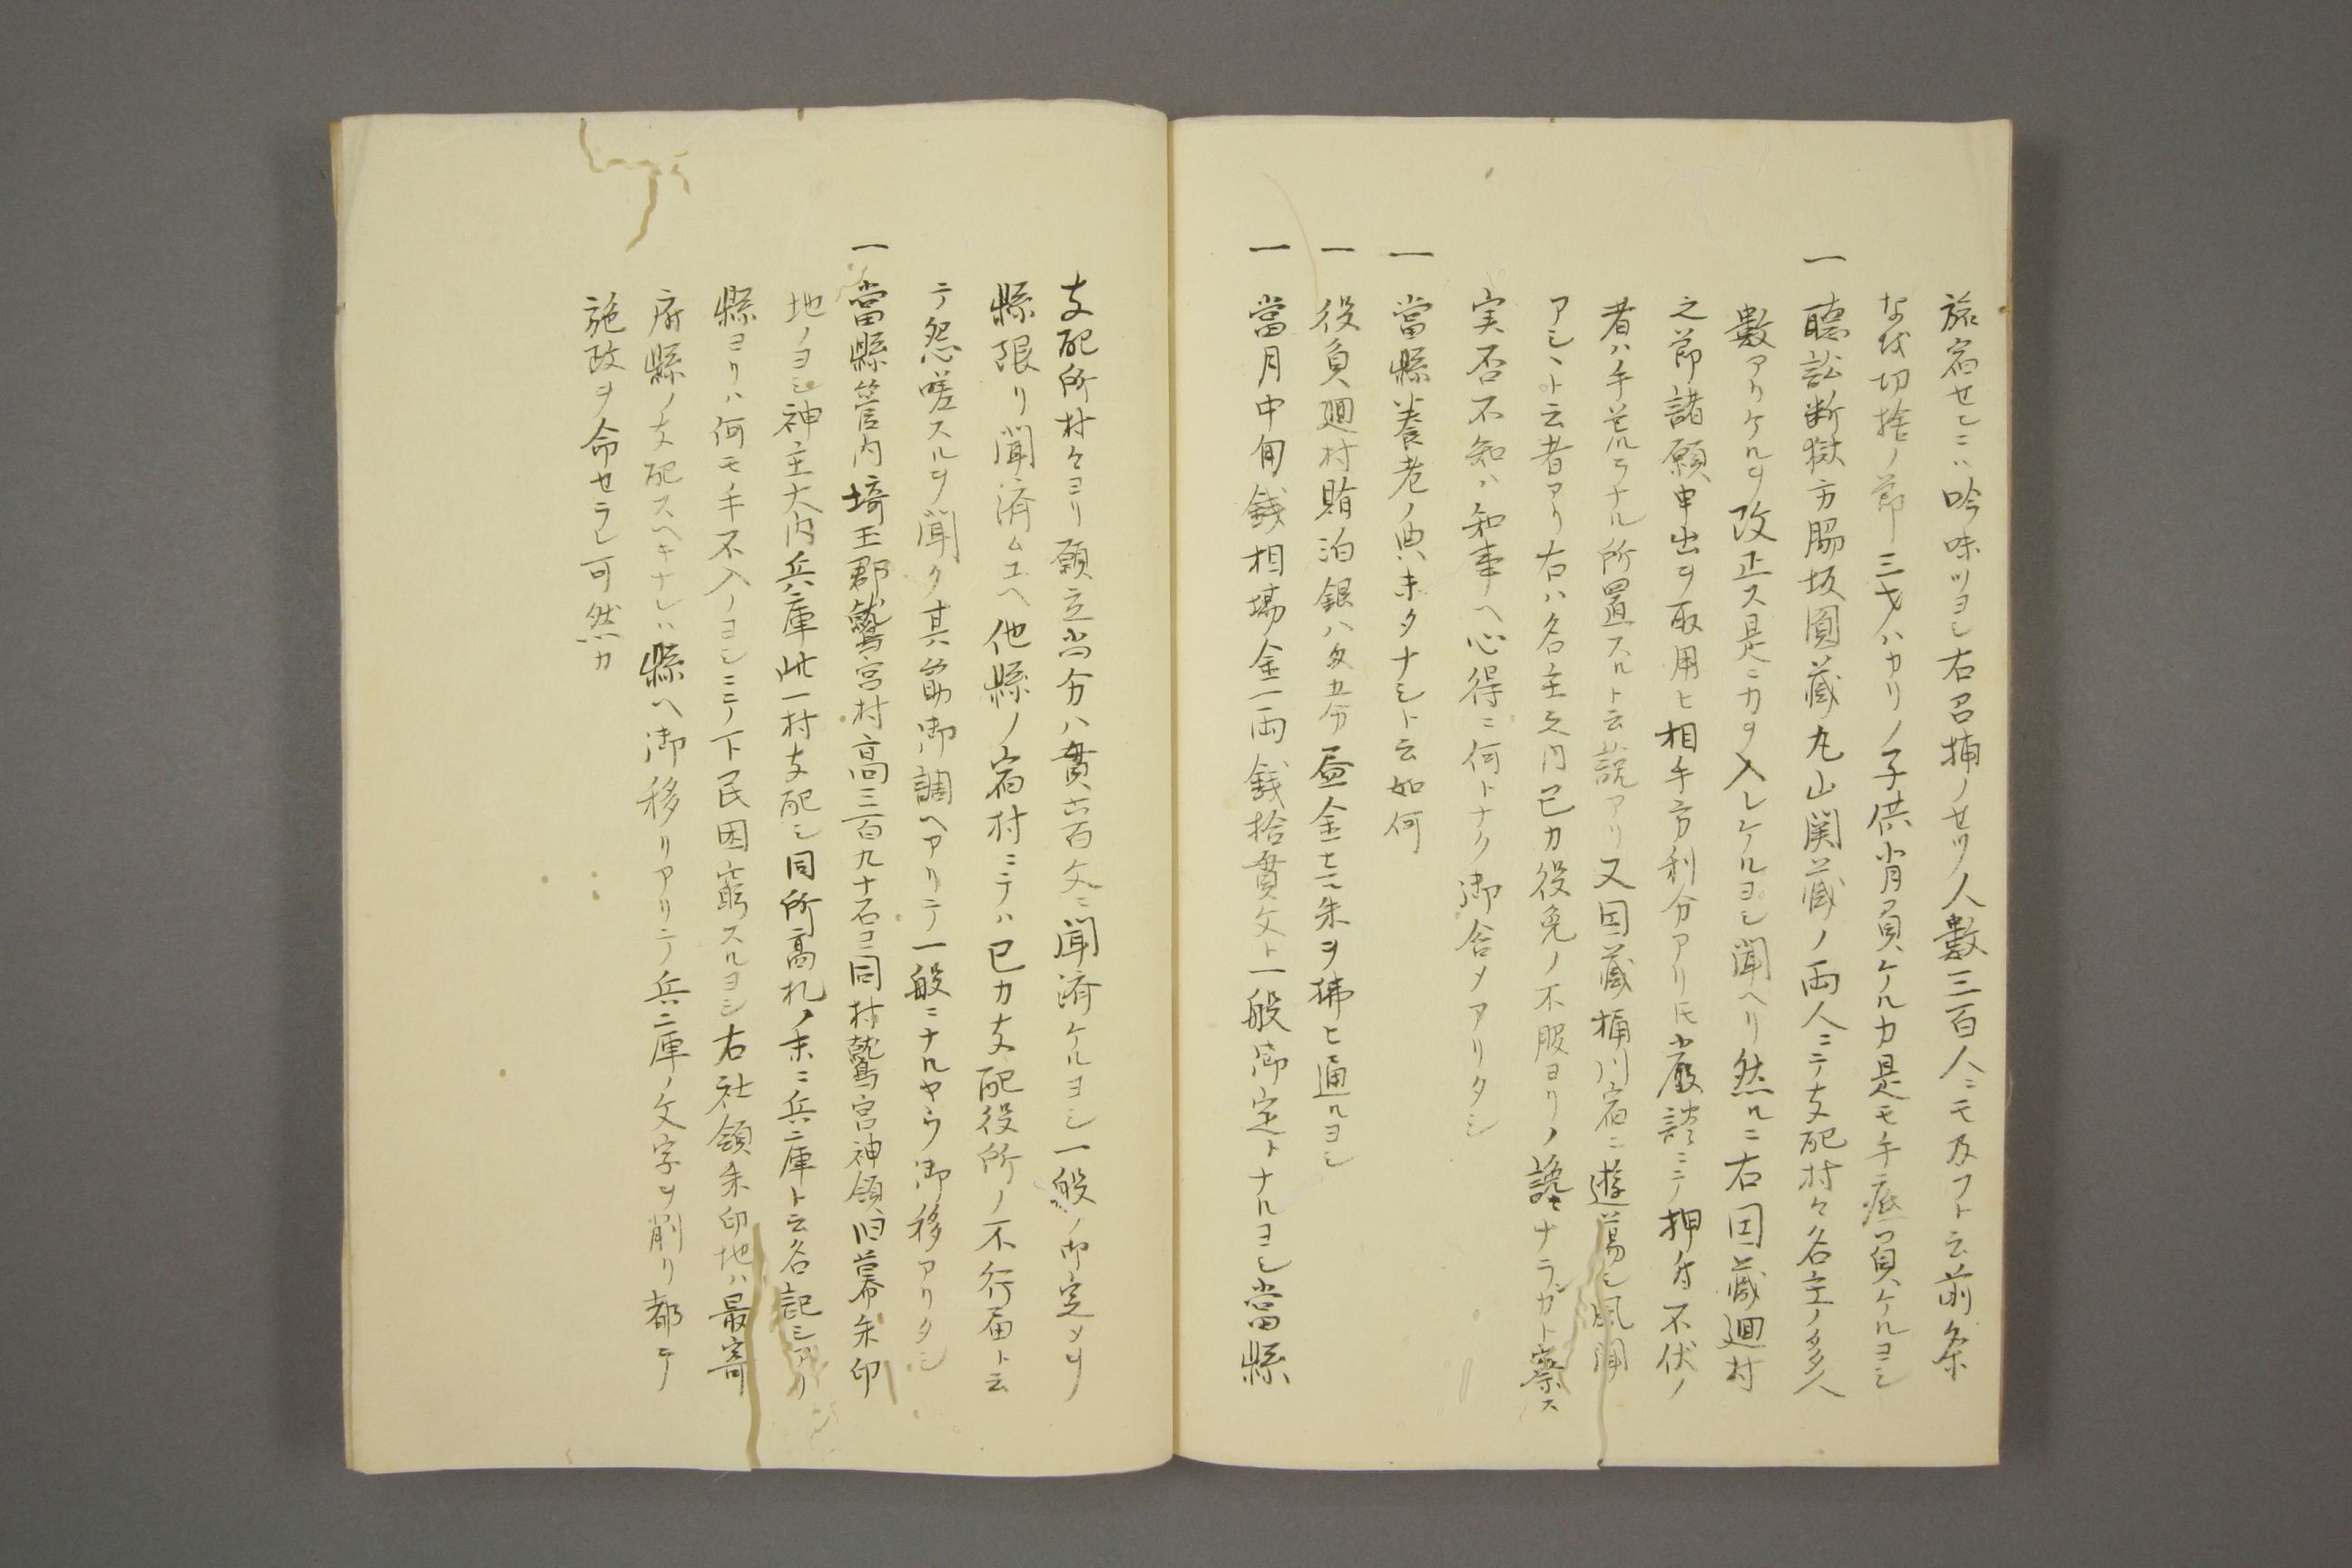 旅宿セシニハ吟味ツヨシ右召捕ノセツ人數三百人ニモ及フト云前条
なを切捨ノ節三才ハカリノ子供背負ケルカ是モ手疵負ケルヨシ
一 聽訟断獄方脇坂圓蔵丸山関蔵ノ両人ニテ支配村々名主ノ多人
數アリケルヲ改正ス是ニカヲ入レケルヨシ聞ヘリ然ルニ右円蔵廻村
之節諸願申出ヲ取用ヒ相手方利分アリ𪜈嚴談ニテ押付不伏ノ
者ハ手荒ラナル所置スルト云説アリ又円蔵桶川宿ニ遊蕩シ風聞
アシヽト云者アリ右ハ名主之内己カ役免ノ不服ヨリノ讒ナランカト察ス
実否不知ハ知事ヘ心得ニ何トナク御含メアリタシ
一 當縣養老ノ典ハ未タナシト云如何
一 役員廻村賄泊銀八匁五分昼金壱朱ヲ拂ヒ通ルヨシ
一 當月中旬銭相場金一両銭拾貫文ト一般御定トナルヨシ當縣
支配所村々ヨリ願立当分八貫六百文ニ聞済ケルヨシ一般ノ御定メヲ
縣限リ聞済ムユヘ他縣ノ宿村ニテハ己カ支配役所ノ不行届ト云
テ怨嗟スルヲ聞ク其筋御調ヘアリテ一般ニナルヤウ御移アリタシ
一 當縣管内埼玉郡鷲宮村高三百九十石ヨ同村鷲宮神領旧幕朱印
地ノヨシ神主大内兵庫此一村支配シ同所高札ノ末ニ兵庫ト云名記シアリ
縣ヨリハ何モ手不入ノヨシニテ下民困窮スルヨシ右社領朱印地ハ最寄
府縣ノ支配スヘキナレハ縣ヘ御移リアリテ兵庫ノ文字ヲ削リ都テ
施政ヲ命セラレ可然カ